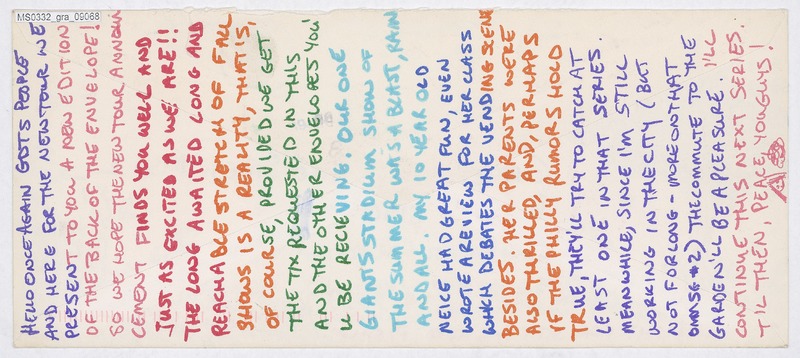 MS0332_gra_09068
HELLO ONCE AGAIN GDTS PEOPLE
AND HERE FOR THE NEW TOUR WE
PRESENT TO YOU A NEW EDITION
OF THE BACK OF THE ENVELOPE!
SO WE HOPE THE NEW TOUR ANNOUN
CEMENT FINDS YOU WELL AND
JUST AS EXCITED AS WE ARE!!
THE LONG AWAITED LONG AND
REACHABLE STRETCH OF FALL
SHOWS IS A REALITY, THAT IS,
OF COURSE, PROVIDED WE GET
THE TIX REQUESTED IN THIS
AND THE OTHER ENVELOPES YOU'
LL BE RECIEVING. OUR ONE
GIANTS STADIUM SHOW OF
THE SUMMER WAS A BLAST, RAIN
AND ALL. MY 10 YEAR OLD
NEICE HAD GREAT FUN, EVEN
WROTE A REVIEW FOR HER CLASS
WHICH DEBATES THE VENDING SCENE
BESIDES. HER PARENTS WERE
ALSO THRILLED, AND, PERHAPS
IF THE PHILLY RUMORS HOLD
TRUE, THEY'LL TRY TO CATCH AT
LEAST ONE IN THAT SERIES.
MEANWHILE, SINCE I'M STILL
WORKING IN THE CITY (BUT
NOT FOR LONG - MORE ON THAT
OMNSG #2) THE COMMUTE TO THE
GARDEN'LL BE A PLEASURE. I'LL
CONTINUE THIS NEXT SERIES.
T'IL THEN, PEACE, YOU GUYS!